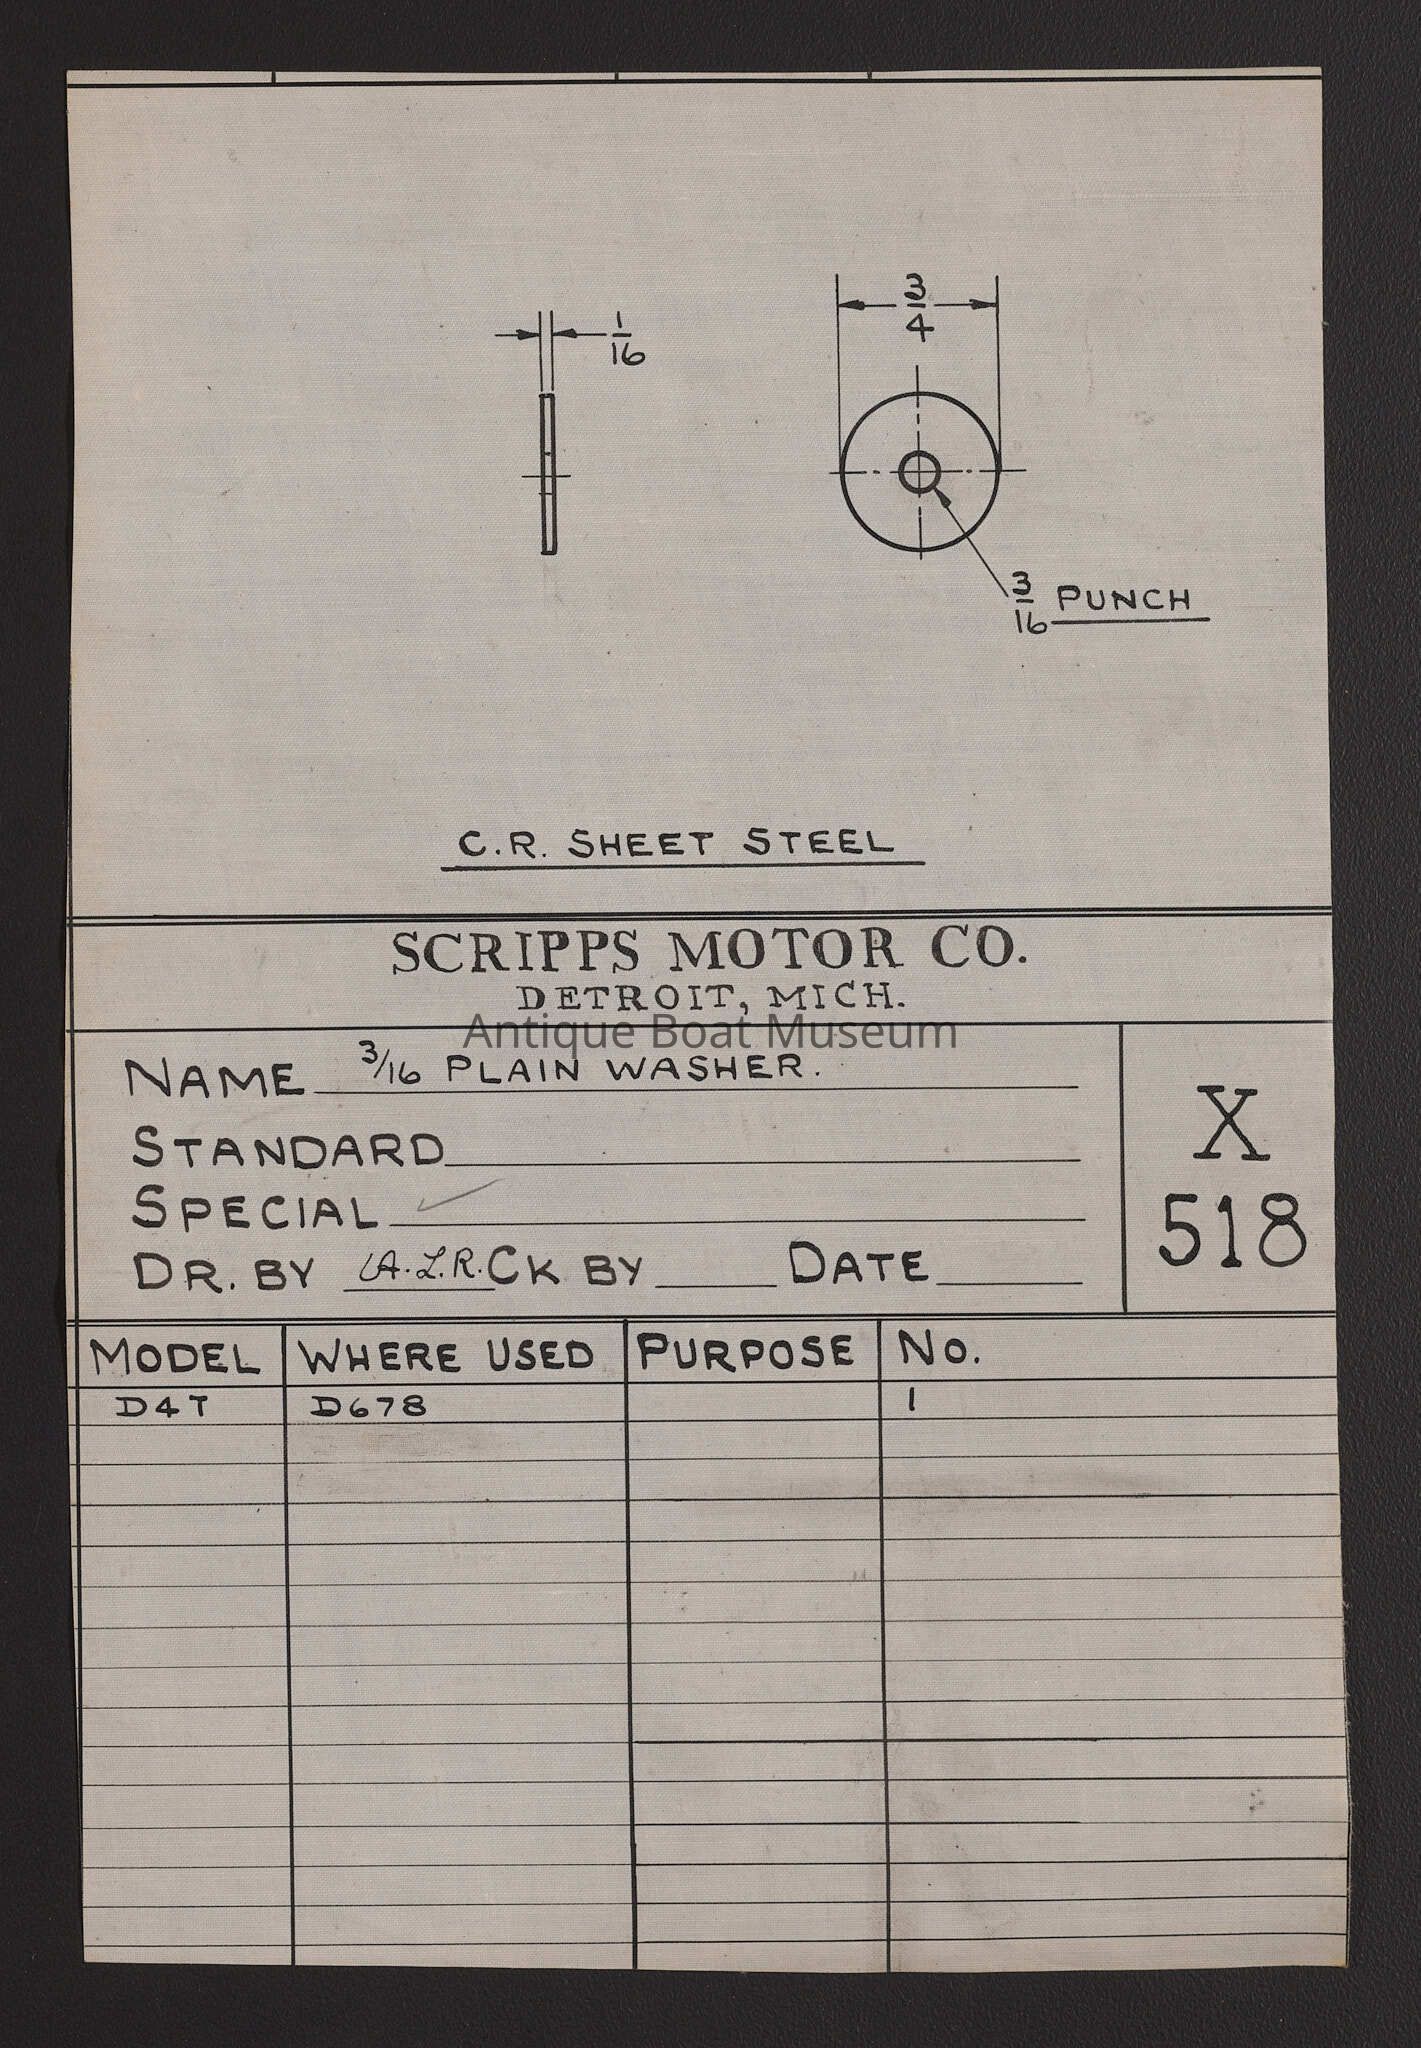 3/4
1/16
3/16 PUNCH
C.R. SHEET STEEL
SCRIPPS MOTOR CO.
DETROIT, MICH.
Antique Boat Museum
NAME 3/16 PLAIN WASHER.
STANDARD
SPECIAL ✓
DR. BY A.L.R. CK BY DATE
X
518
MODEL WHERE USED PURPOSE NO.
D4T D678 1